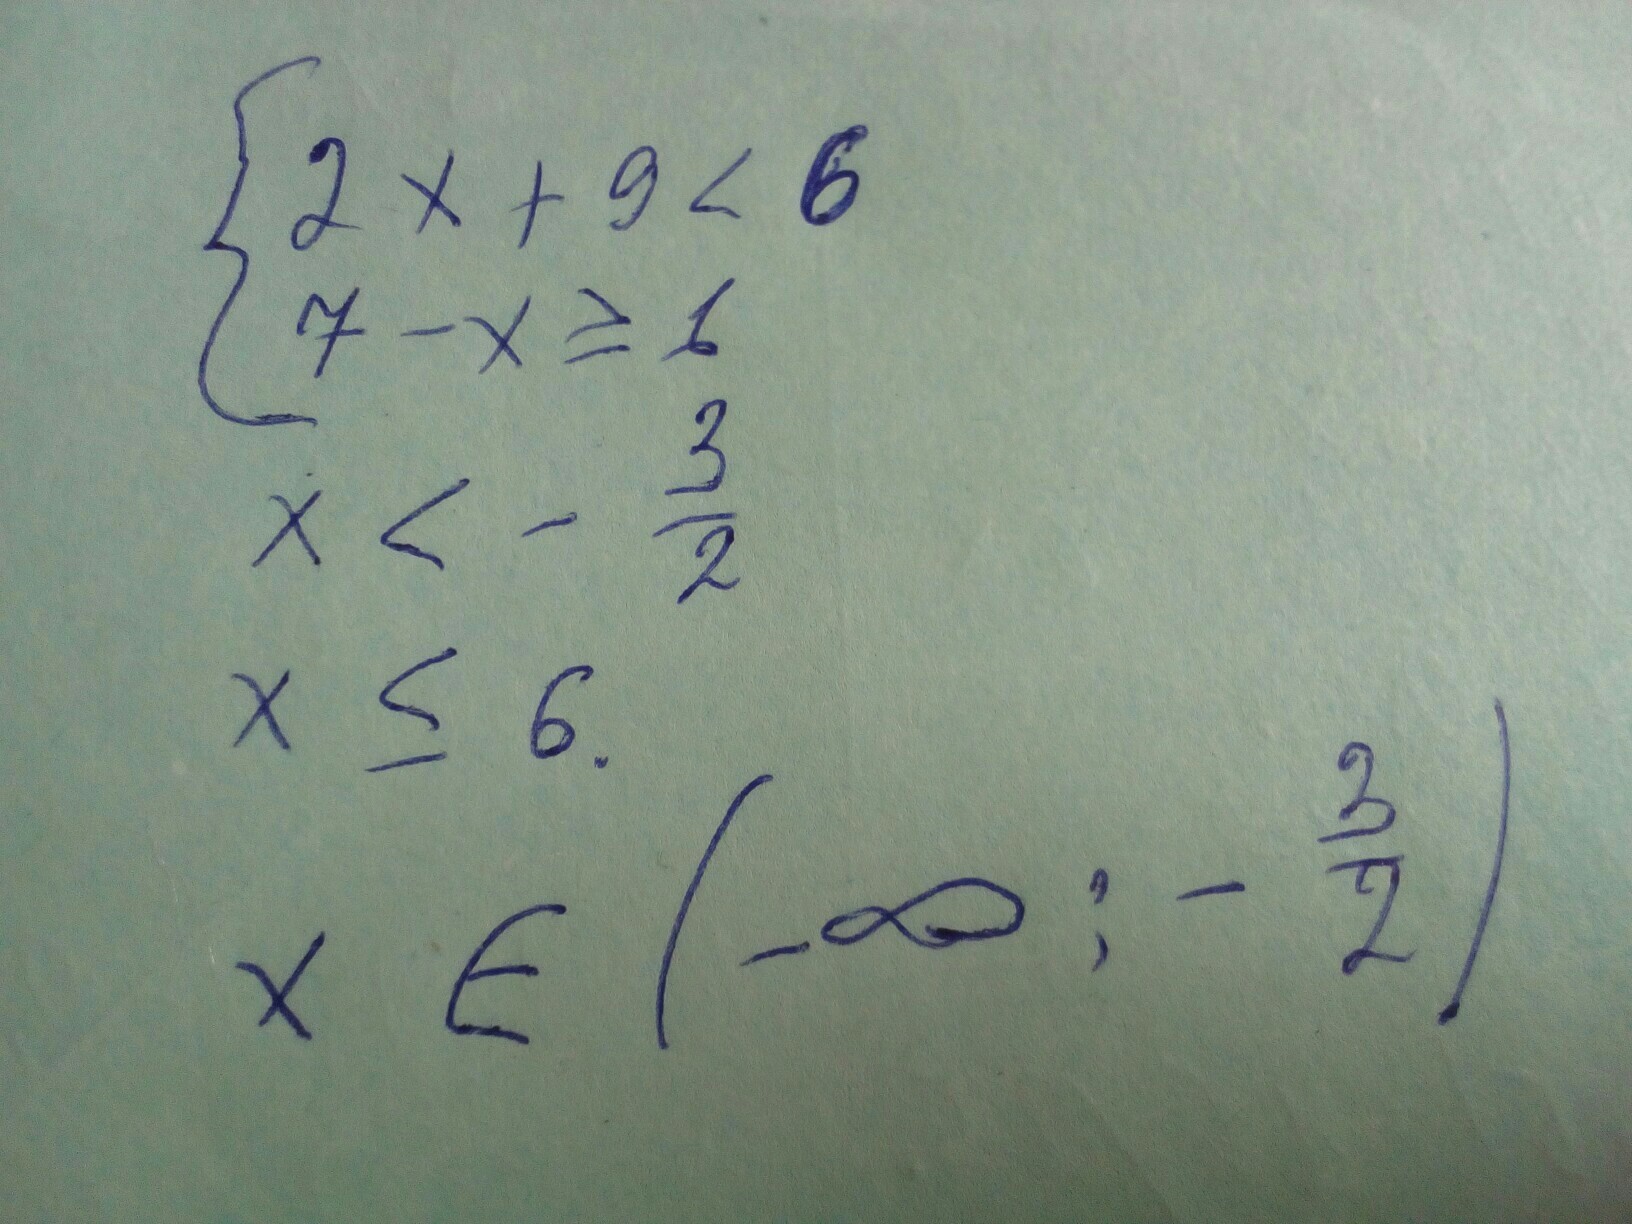 { 2x + 9 < 6
7 - x ≥ 1
x < - 3/2
x ≤ 6.
x ∈ (-∞; - 3/2)